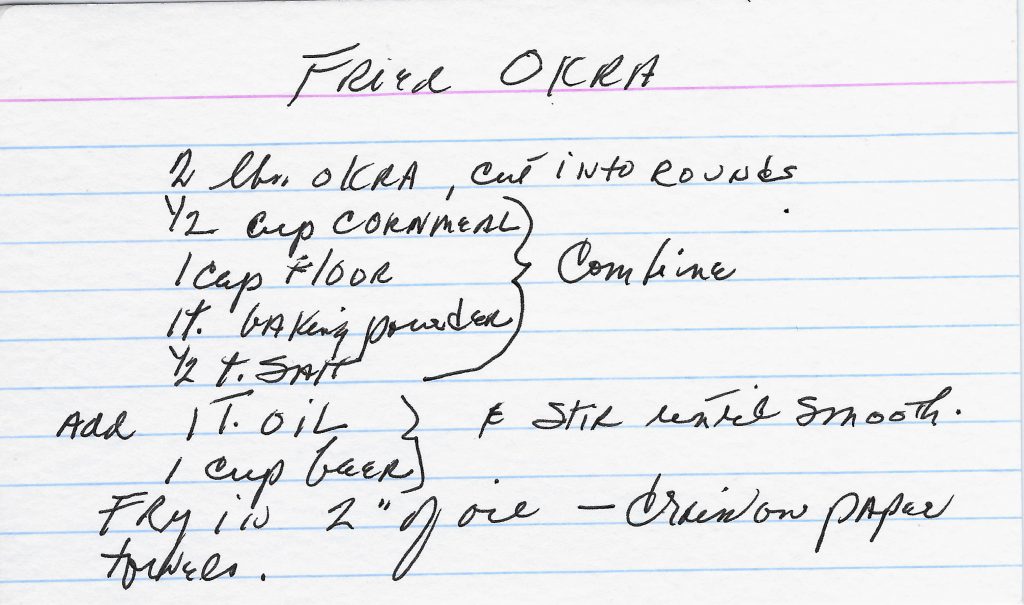 Fried OKRA
2 lbs. OKRA, cut into ROUNDS
1/2 cup CORNMEAL
1 cup Floor
Combine
1 t. baking powder
1/2 t. Salt
Add 1 T. OIL
& Stir until Smooth.
1 cup beer
FRy in 2" of oil – drain on paper
towels.